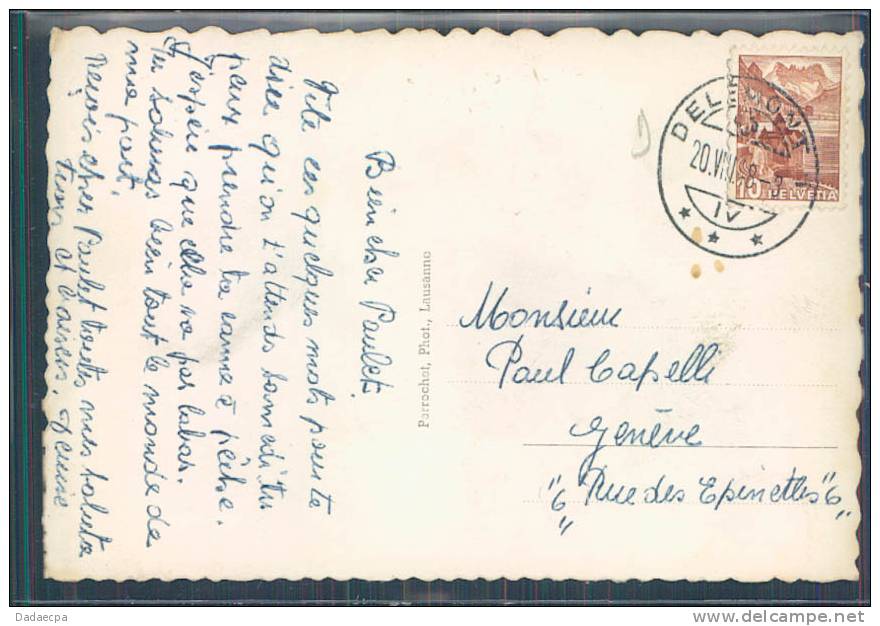 Bien cher Paulet.
Vite ces quelques mots pour te
dire qu'on t'attends samedi. Tu
peux prendre ta canne à pêche.
J'espère que cela va par labas.
Tu salueras bien tout le monde de
ma part.
Reçois cher Paulet toutes mes saluta
tions et baisers. Denise
Perrochet, Phot., Lausanne
DELÉMONT
20.VIII.48
IV
10 HELVETIA
Monsieur
Paul Capelli
Genève
"6 Rue des Epinettes" 6
Dadaecpa
www.delcampe.net